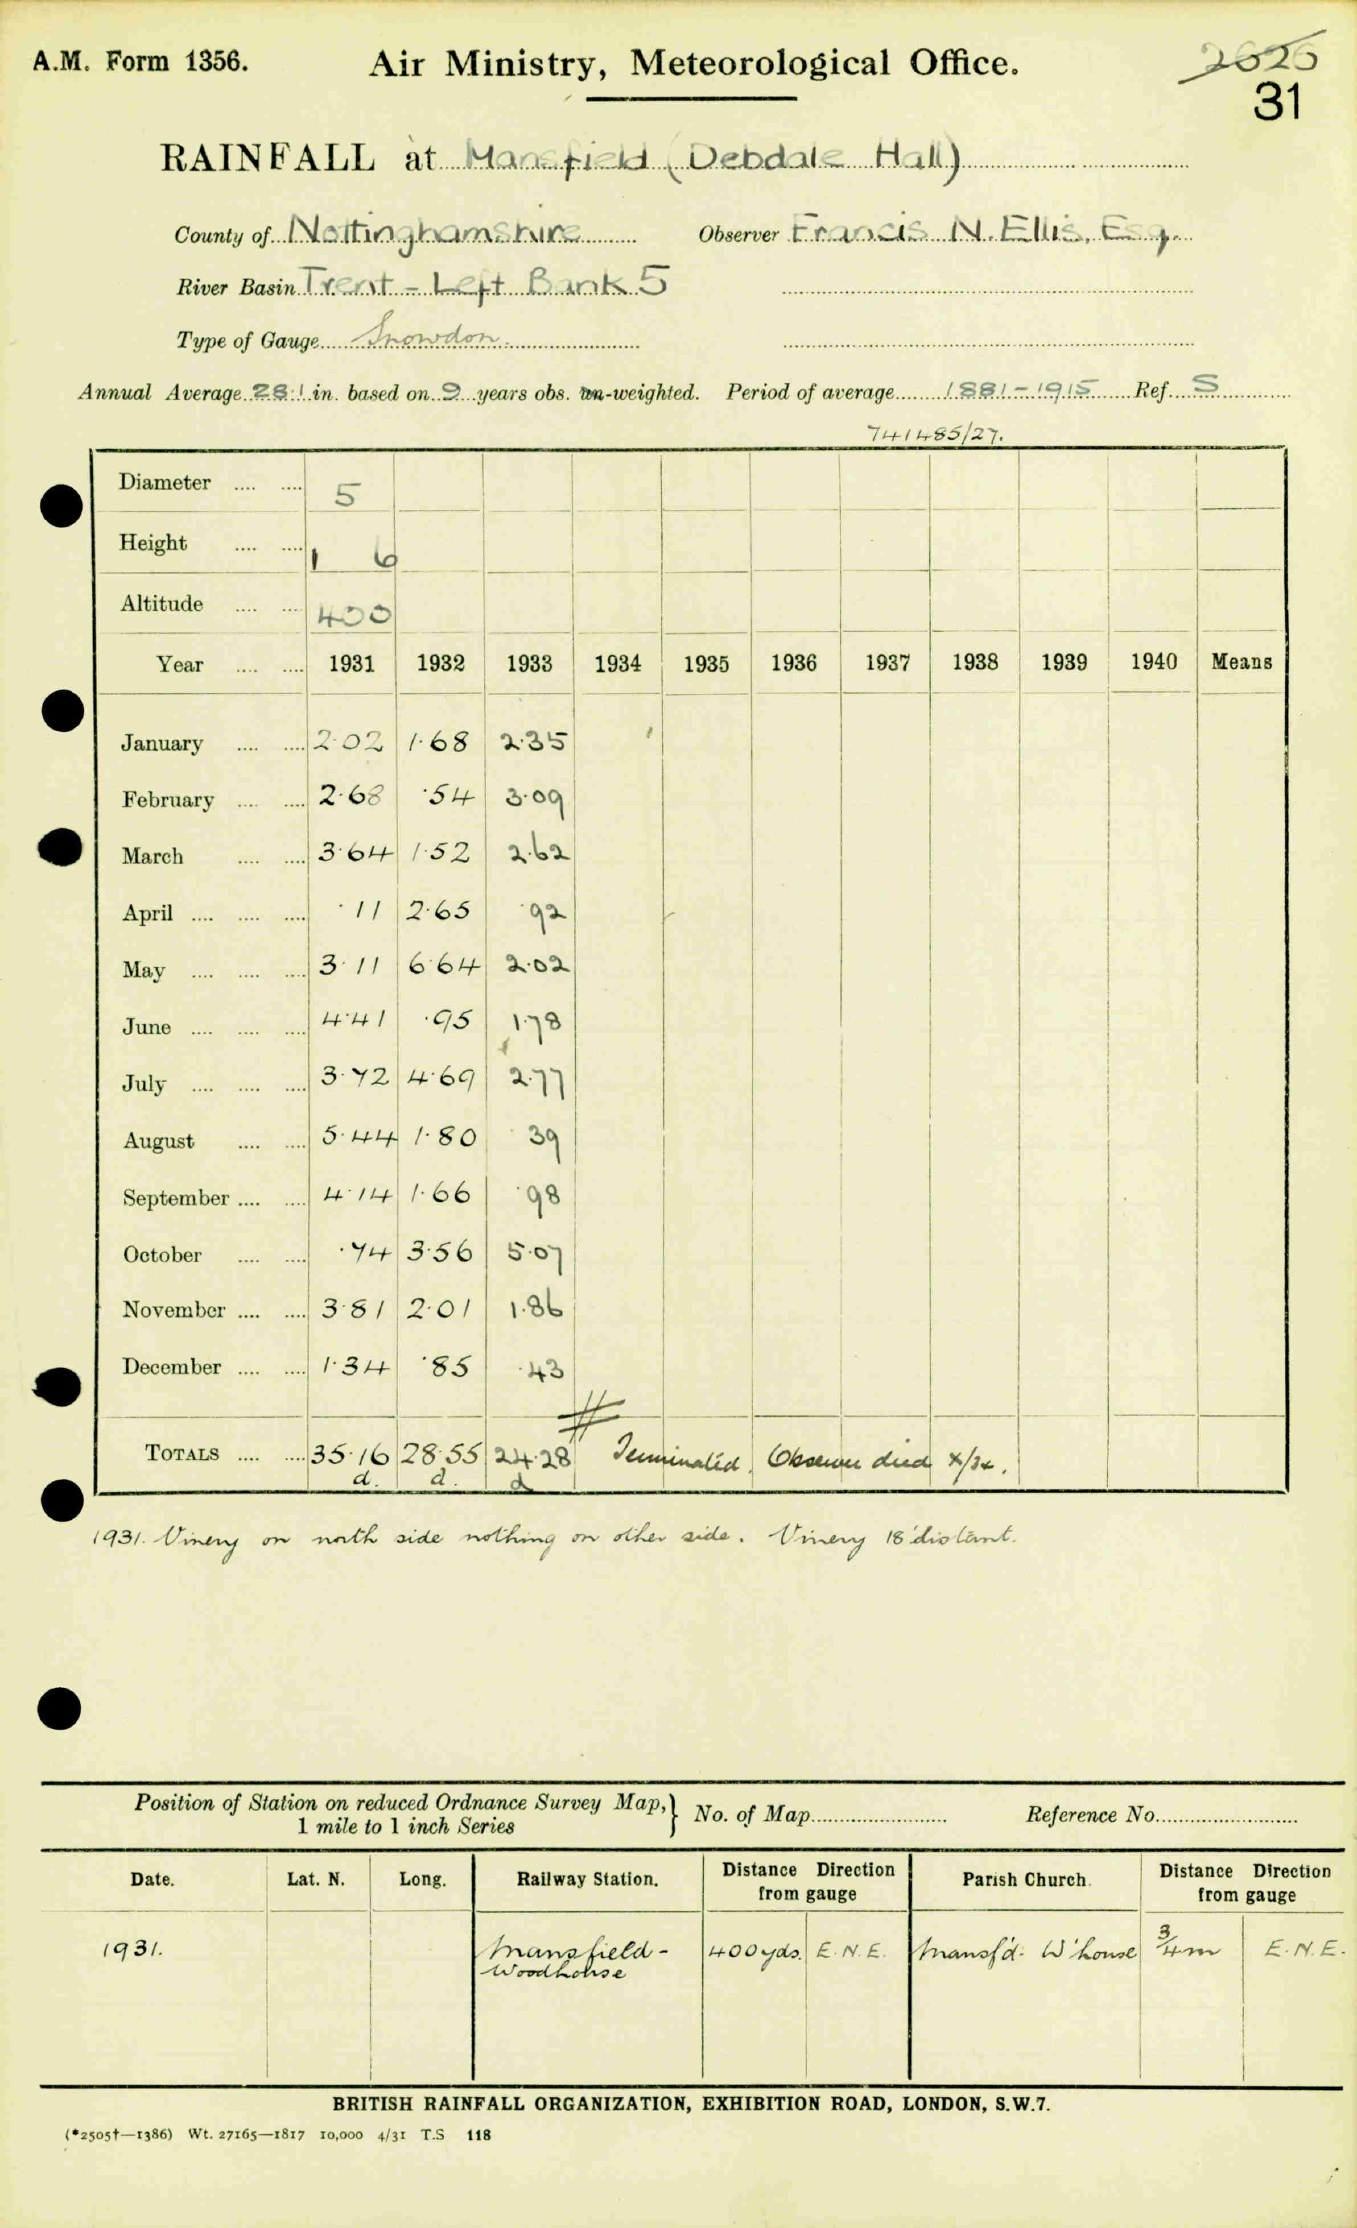 A.M. Form 1356. Air Ministry, Meteorological Office. 2625
31
RAINFALL at Mansfield (Debdale Hall)
County of Nottinghamshire Observer Francis N. Ellis, Esq.
River Basin Trent - Left Bank 5
Type of Gauge Snowdon.
Annual Average 28.1 in. based on 9 years obs. un-weighted. Period of average 1881-1915 Ref. S
741485/27.
Diameter .... .... 5
Height .... .... 1 6
Altitude .... .... 400
Year .... .... 1931 1932 1933 1934 1935 1936 1937 1938 1939 1940 Means
January .... .... 2.02 1.68 2.35
February .... .... 2.68 .54 3.09
March .... .... 3.64 1.52 2.62
April .... .... .... .11 2.65 .92
May .... .... .... 3.11 6.64 2.02
June .... .... .... 4.41 .95 1.78
July .... .... .... 3.72 4.69 2.77
August .... .... 5.44 1.80 .39
September .... .... 4.14 1.66 .98
October .... .... .74 3.56 5.07
November .... .... 3.81 2.01 1.86
December .... .... 1.34 .85 .43
TOTALS .... .... 35.16 28.55 24.28 Terminated. Observer died X/34.
d. d. d
1931. Vinery on north side nothing on other side. Vinery 18' distant.
Position of Station on reduced Ordnance Survey Map, } No. of Map Reference No.
1 mile to 1 inch Series
Date. Lat. N. Long. Railway Station. Distance Direction from gauge Parish Church. Distance Direction from gauge
1931. Mansfield - Woodhouse 400 yds. E.N.E. Mansf'd - W'house 3/4 m E.N.E.
BRITISH RAINFALL ORGANIZATION, EXHIBITION ROAD, LONDON, S.W.7.
(*2505†—1386) Wt. 27165—1817 10,000 4/31 T.S 118